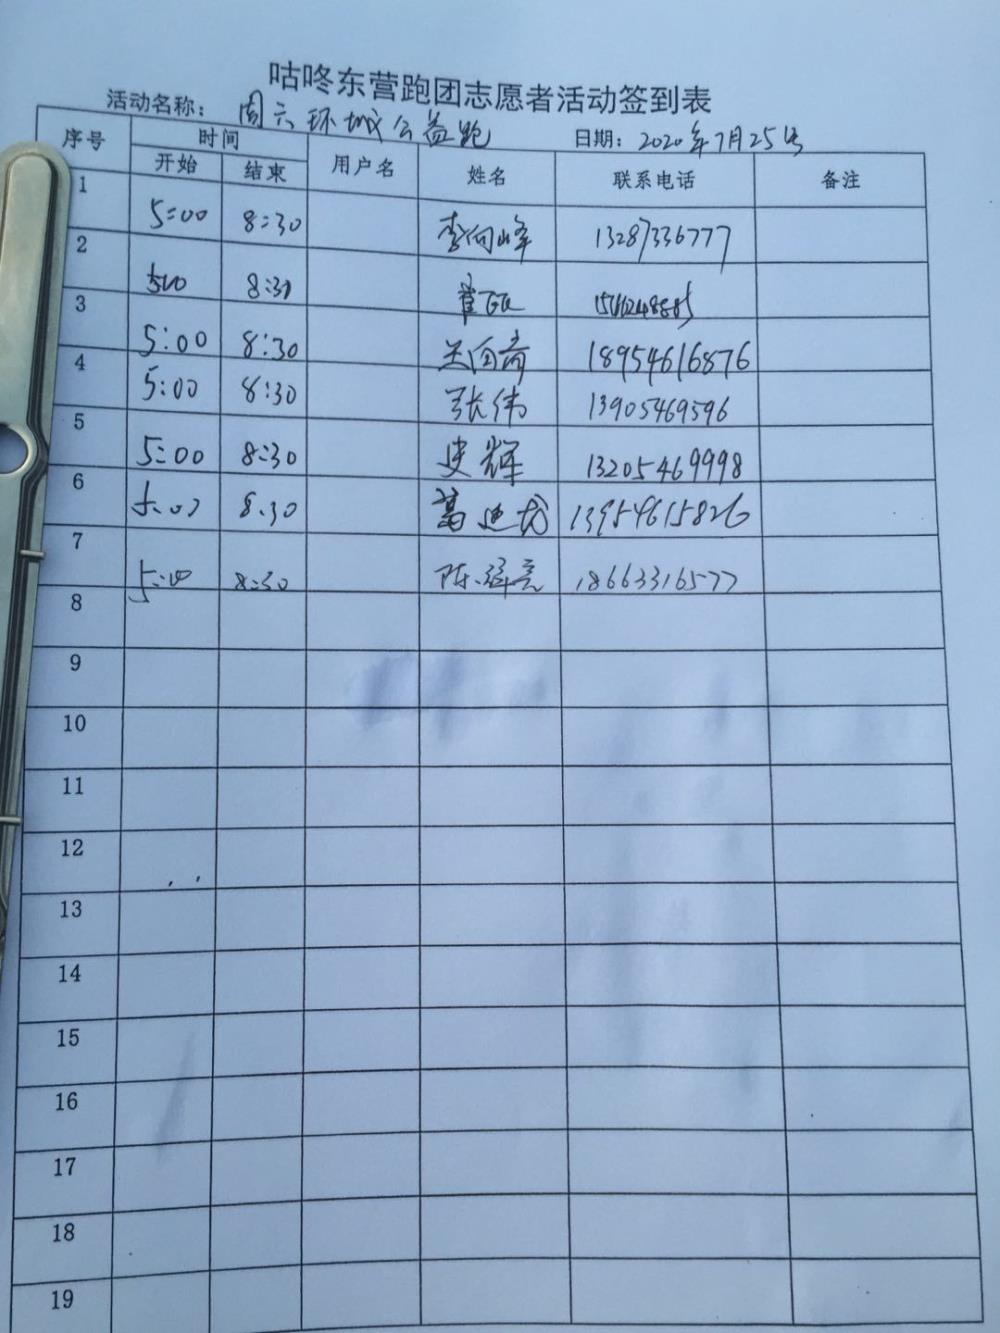 咕咚东营跑团志愿者活动签到表
活动名称： 周六环城公益跑 日期： 2020年7月25号
序号 时间 用户名 姓名 联系电话 备注
开始 结束
1 5:00 8:30 李向峰 13287336777
2 5:00 8:30 崔
3 5:00 8:30 18954616876
4 5:00 8:30 张伟 13905469596
5 5:00 8:30 史辉 13205469998
6 5:00 8.30 葛迎龙 13954615826
7 5:00 8:30 陈 亮 18663316577
8
9
10
11
12
13
14
15
16
17
18
19